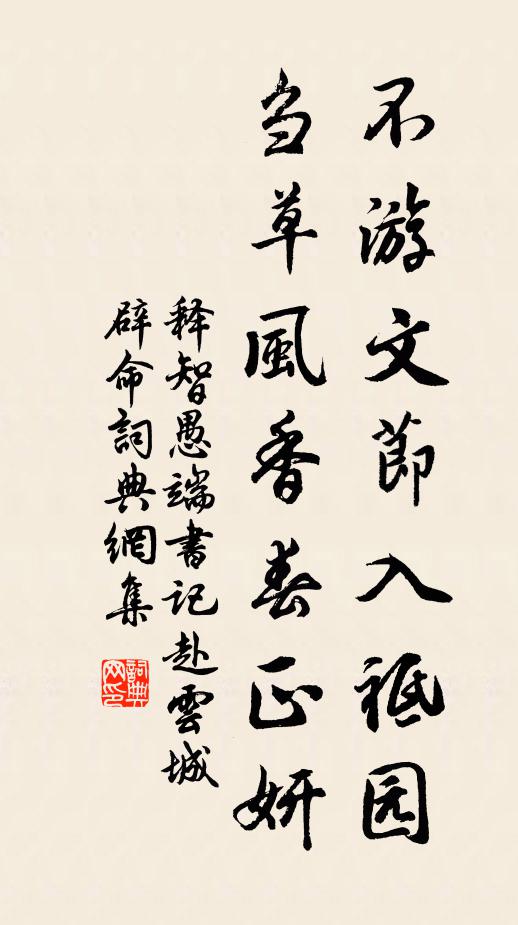 不游文節入祗园
刍草風香春正妍
释智愚端書記赴雲城
辟命詞典網集
詞典网印